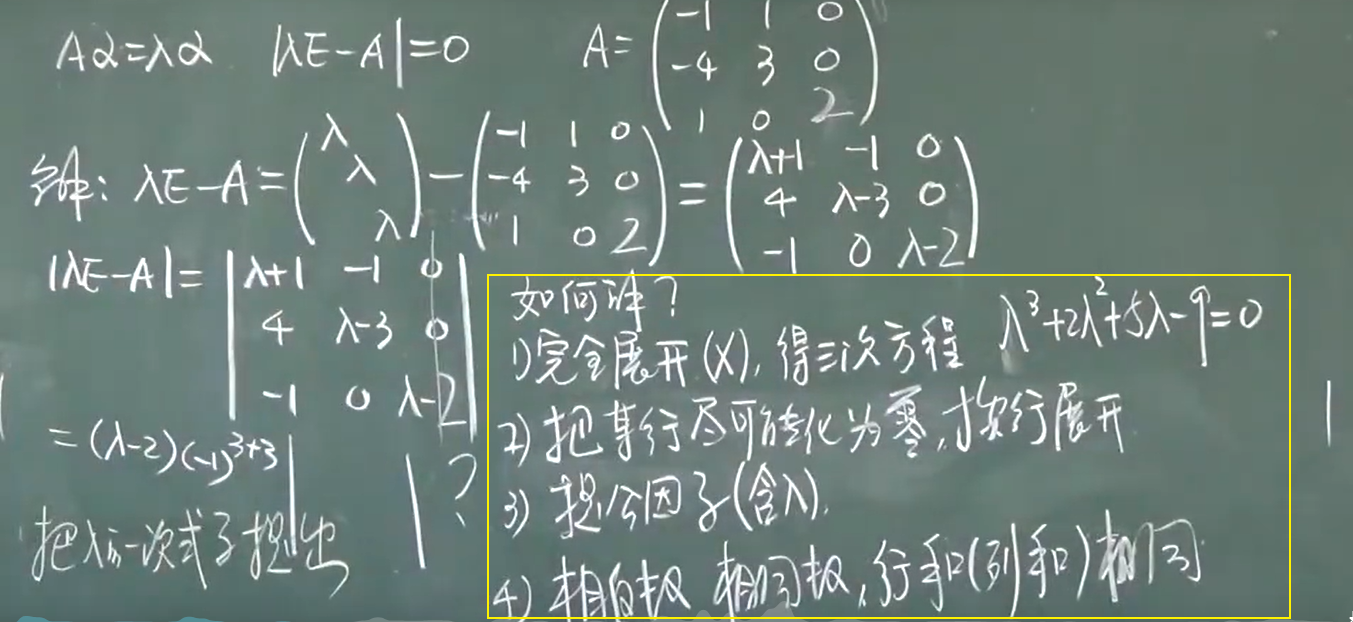 Aα=λα |λE-A|=0 A=
-1 1 0
-4 3 0
1 0 2
解: λE-A=
λ
λ
λ
-
-1 1 0
-4 3 0
1 0 2
=
λ+1 -1 0
4 λ-3 0
-1 0 λ-2
|λE-A|=
λ+1 -1 0
4 λ-3 0
-1 0 λ-2
=(λ-2)(-1)^{3+3} | | ?
把λ的一次式子提出
如何求?
1)完全展开(X),得三次方程 λ³+2λ²+5λ-9=0
2)把某行尽可能转化为零,按行展开
3)提公因子(含λ).
4)相反 相同 ,行和(列和)相同